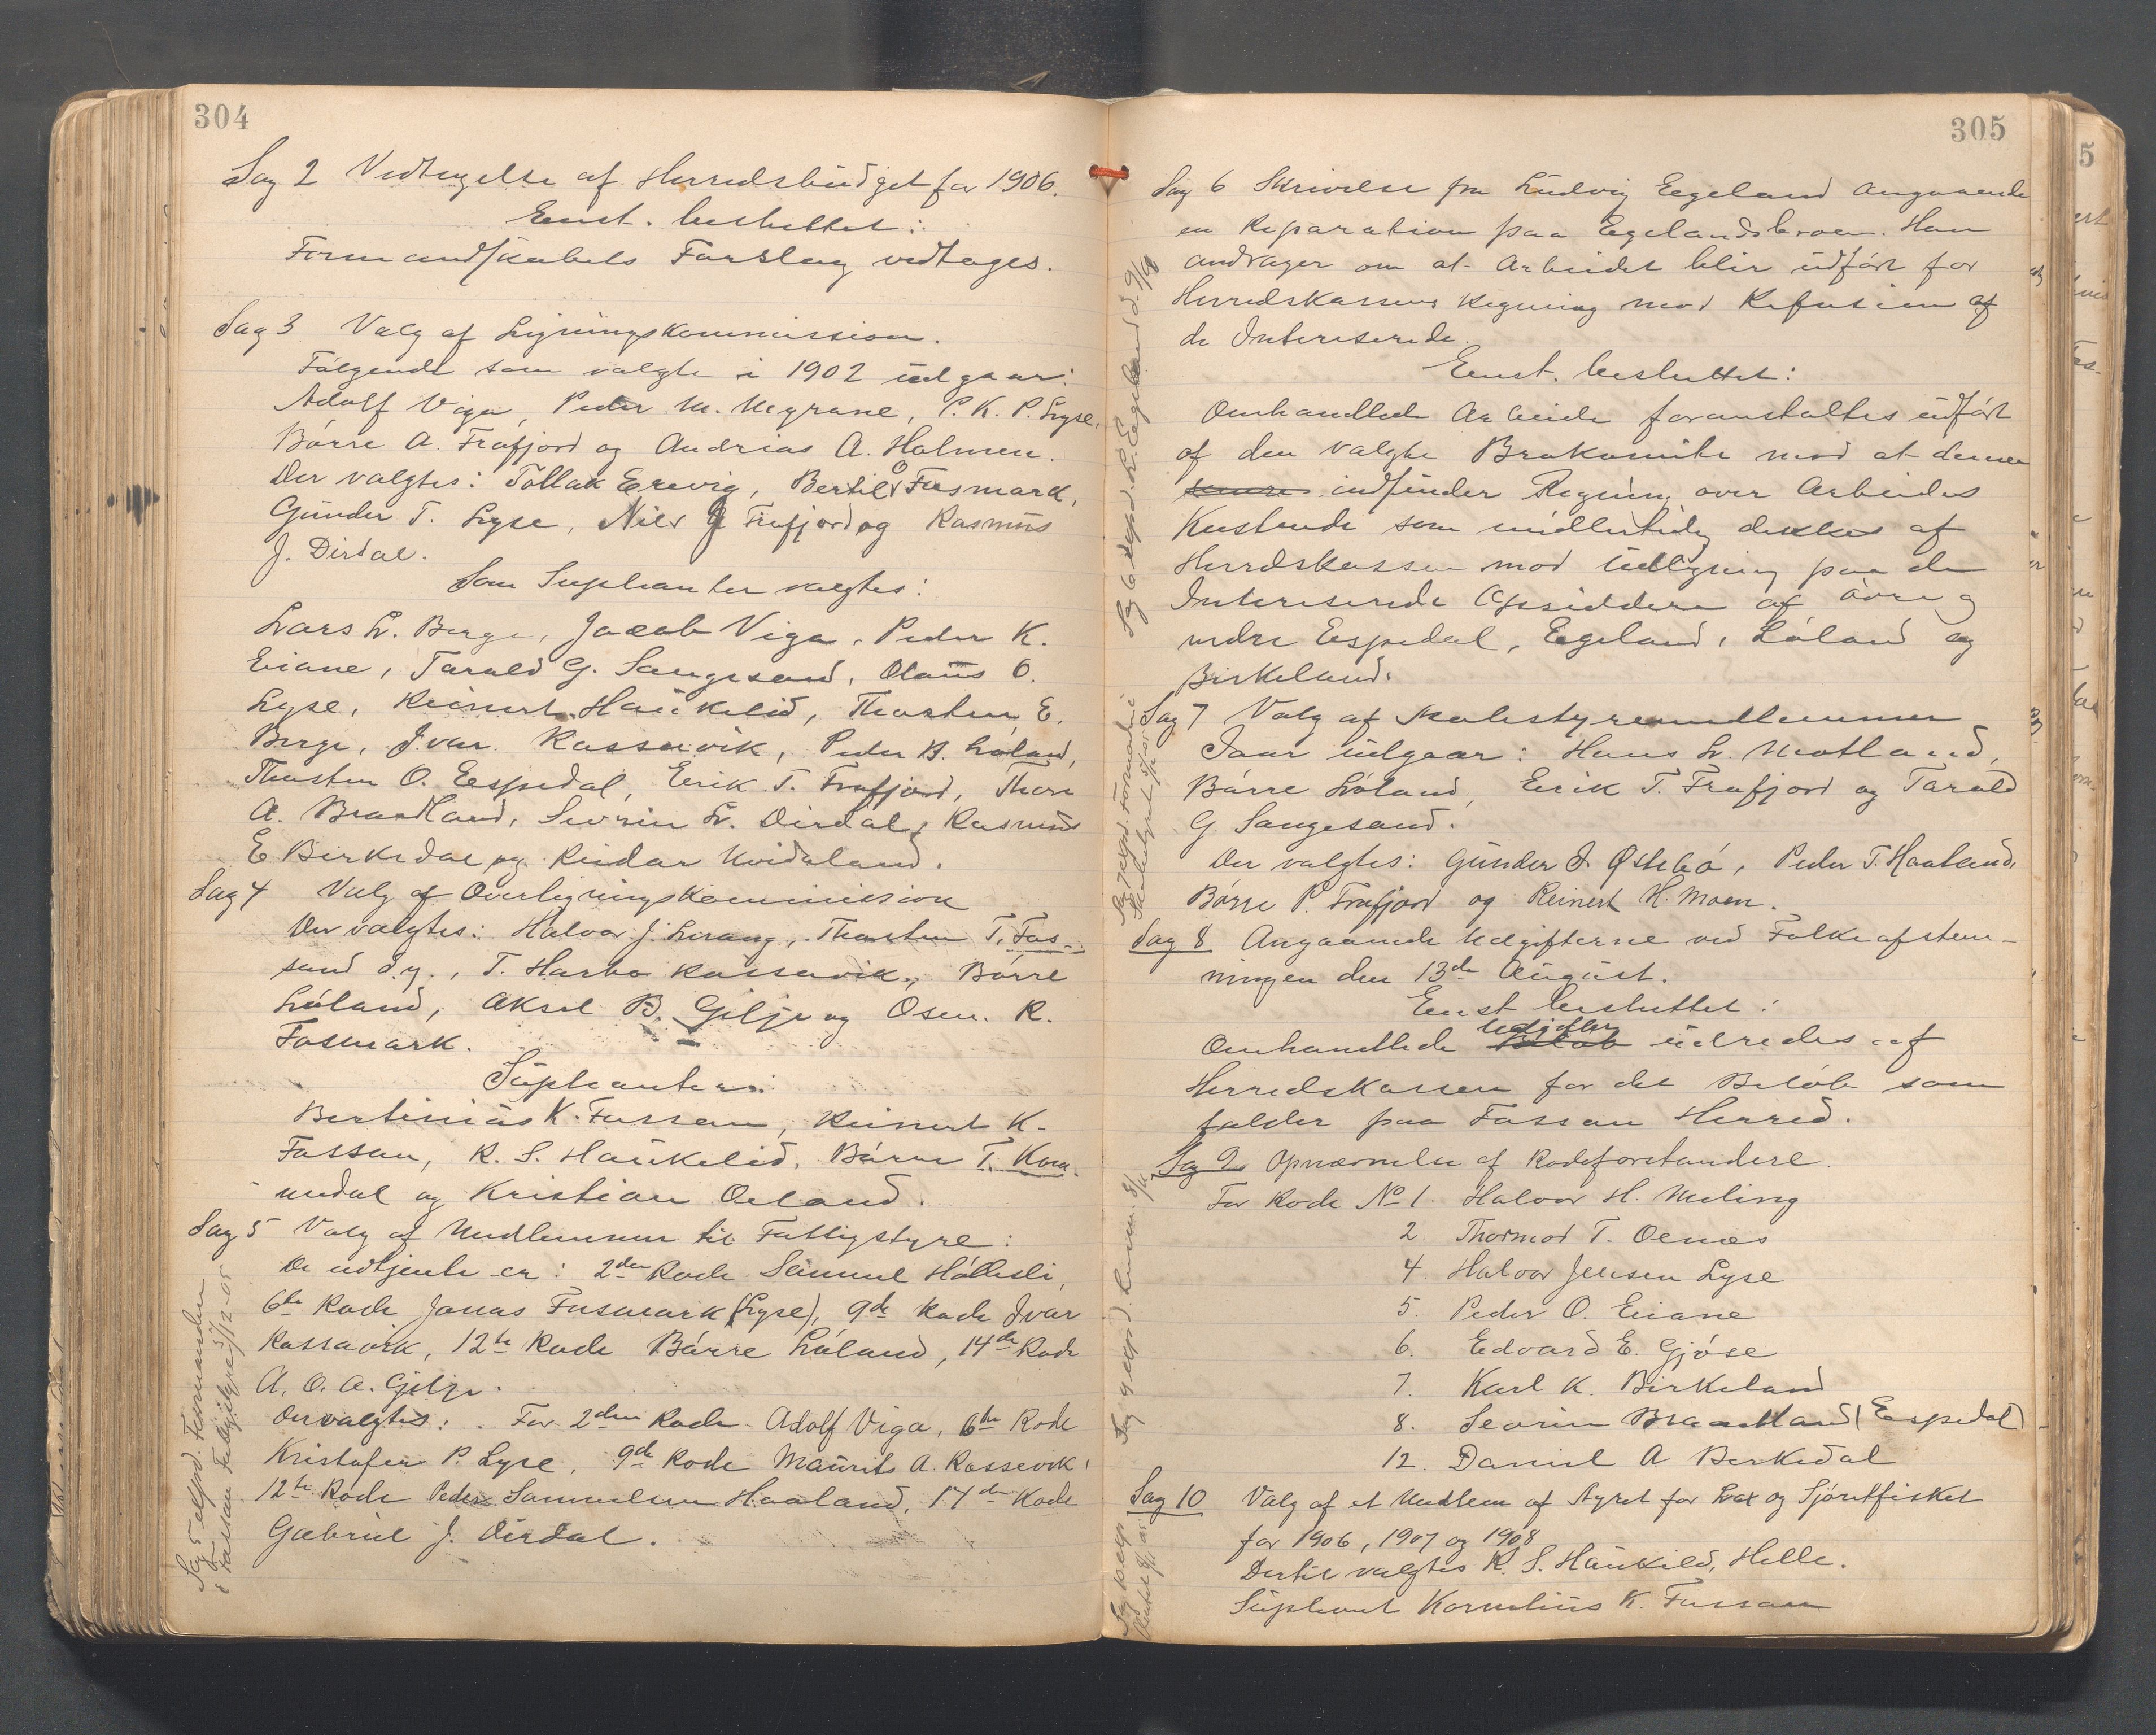 304
Sag 2 Vedtagelse af Herredsbudget for 1906.
Enst. besluttet:
Formandskabets Forslag vedtages.
Sag 3 Valg af Ligningskommission.
Følgende som valgte i 1902 udgaar:
Adolf Viga, Peder M. Meyrane, P. K. P. Lyse,
Børre A. Frafjord og Andrias A. Holmen.
Der valgtes: Tollak Erevig, Bertil O Fosmark,
Gunder T. Lyse, Nils J Frafjord og Rasmus
J. Dirdal.
Som Suplanter valgtes:
Lars L. Berge, Jacob Viga, Peder K.
Eiane, Tarald G. Sangesand, Olaus O.
Lyse, Reinert Haukelid, Thorsten E.
Berge, Ivar Rossavik, Peder B. Løland,
Thorsten O. Espedal, Eerik T. Frafjord, Thore
A. Brandland, Sevrin L. Dirdal, Rasmus
E Birkedal og Reidar Kvidaland.
Sag 4 Valg af Overligningskommission
Der valgtes: Halvor J. Levang, Thorsten T. Fos-
sand d.y., T. Harbo Rossavik, Børre
Løland, Aksel B. Gilje og Osm. R.
Fosmark.
Suplanter:
Bertinius K. Fossan, Reinert K.
Fossan, R. S. Haukelid, Børre T. Kom-
medal og Kristian Oeland.
Sag 5 Valg af Medlemmer til Fattigstyre:
De udtjente er: 2den Rode Samuel Høllesli,
6te Rode Jonas Fosmark (Lyse), 9de Rode Ivar
Rossavik, 12te Rode Børre Løland, 14de Rode
A. O. A. Gilje.
Der valgtes: For 2den Rode Adolf Viga, 6te Rode
Kristofer P. Lyse, 9de Rode Maurits A. Rossevik,
12te Rode Peder Samuelsen Haaland, 14de Rode
Gabriel J. Dirdal.
Sag 5 exspd. Formanden
i Fossan Fattigstyre 5/12-05
305
Sag 6 Skrivelse fra Ludvig Eegeland angaaende
en Reparation paa Egelandsbroen. Han
andrager om at Arbeidet blir udført for
Herredskassens Regning mod Refusion af
de Interesserede.
Enst. besluttet:
Omhandlede Arbeide foranstaltes udført
af den valgte Brokomite mod at denne
senere indsender Regning over Arbeidets
Kostende som midlertidig dækkes af
Herredskassen mod Udligning paa de
Interesserede Opsiddere af øvre og
nedre Espedal, Egeland, Løland og
Birkeland.
Sag 7 Valg af Skolestyremedlemmer
Iaar udgaar: Hans L. Motland,
Børre Løland, Eerik T. Frafjord og Tarald
G. Sangesand.
Der valgtes: Gunder J. Østebø, Peder T. Haaland,
Børre P. Frafjord og Reinert H. Moen.
Sag 8 Angaaende Udgifterne ved Folkeafstem-
ningen den 13de August.
Enst besluttet:
Omhandlede Beløb Udgifter udredes af
Herredskassen for det Beløb som
falder paa Fossan Herred.
Sag 9 Opnævnelse af Rodeforstandere.
For Rode No 1. Halvor H. Meling
2. Thormod T. Oenæs
4. Halvor Jensen Lyse
5. Peder O. Eiane
6. Edvard E. Gjøse
7. Karl K. Birkeland
8. Sevrin Brandland (Espedal)
12. Daniel A Berkedal
Sag 10 Valg af et Medlem af Styret for Lax og Sjøretfisket
for 1906, 1907 og 1908
Dertil valgtes R. S. Haukelid, Helle.
Suplant Kornelius K. Fossan
Sag 6 exspd. L. Eegeland d. 9/10
Sag 7 exspd. Formand i
Sag 9 exspd.